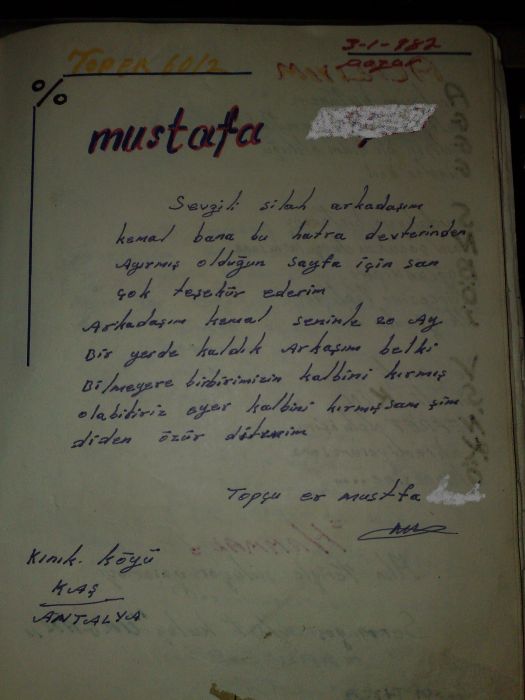 TOPER 60/2
3-1-982
pazar
%
mustafa
Sevgili silah arkadaşım
kemal bana bu hatra devterinden
Ayırmış olduğun sayfa için san
çok teşekür ederim
Arkadaşım kemal seninle 20 Ay
Bir yerde kaldık Arkaşım belki
Bilmeyere birbirimizin kalbini kırmış
olabiliriz eyer kalbini kırmışsam şim
diden özür dilerim
Topçu er mustfa
Kınık. köyü
KAŞ
ANTALYA